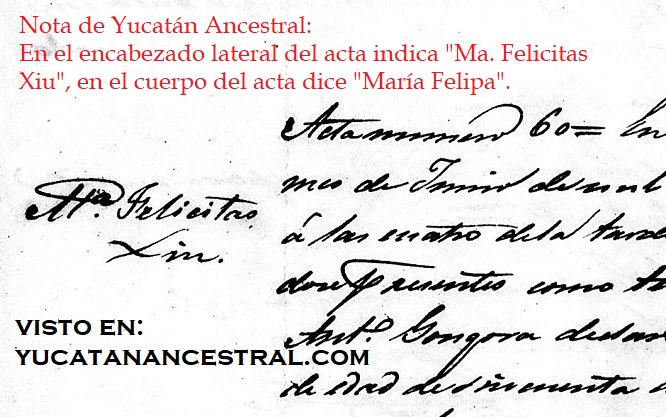 Nota de Yucatán Ancestral:
En el encabezado lateral del acta indica "Ma. Felicitas
Xiu", en el cuerpo del acta dice "María Felipa".
Ma. Felicitas
Xiu.
Acta numero 60= En
mes de Junio de mil
á las cuatro de la tarde
Presentes como
Anto. Gongora
de edad de cincuenta
VISTO EN:
YUCATANANCESTRAL.COM